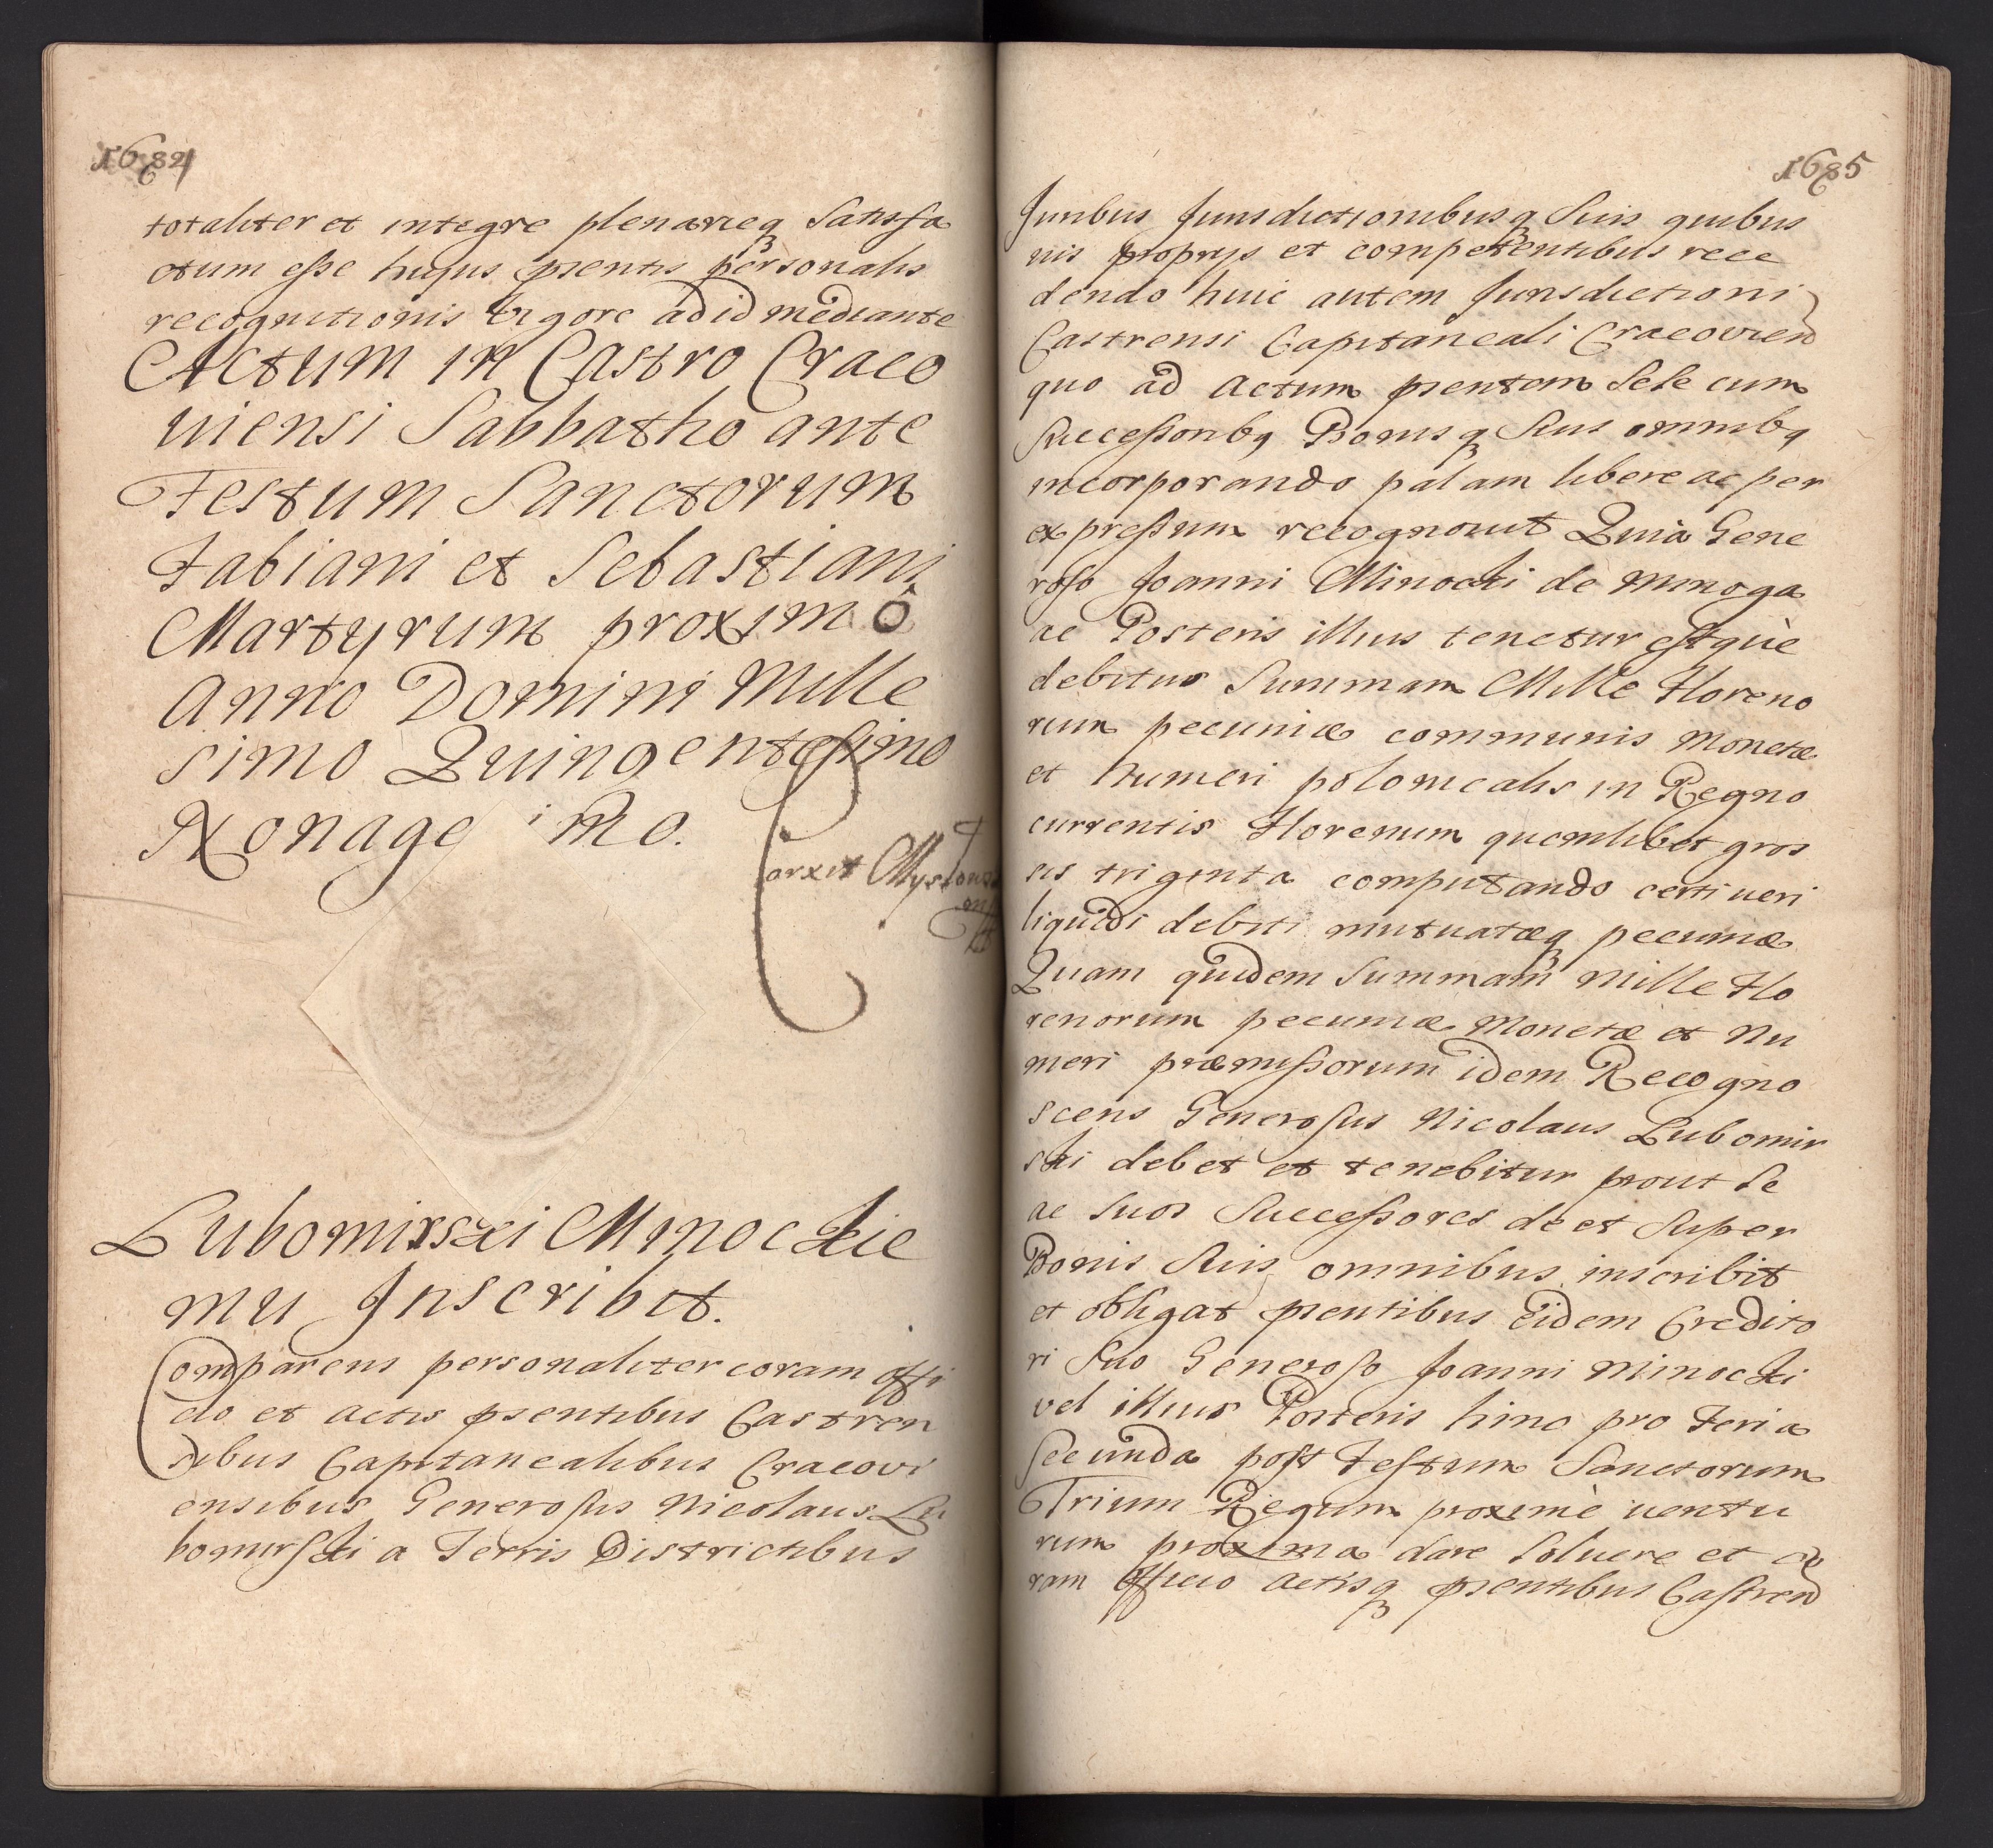 1684
totaliter et integre plenarieq₃ Satisfa
ctum esse hujus pñentis personalis
recognitionis vigore ad id mediante
Actum in Castro Craco
uiensi Sabbatho ante
Festum Sanctorum
Fabiani et Sebastiani
Martyrum proximô
Anno Domini Mille
simo Quingentesimo
Nonagesimo.
Correxit
Lubomirski Minockie
mu Inscribit.
Comparens personaliter coram offi
cio et actis pñentibus Castren
sibus Capitanealibus Cracovi
ensibus Generosus Nicolaus Lu
bomirski a Terris Districtibus
1685
Juribus Jurisdictionibusq₃ Suis quibus
uis proprys et competentibus rece
dendo huic autem Jurisdictioni
Castrensi Capitaneali Cracovien
quo ad actum pñentem Sese cum
Successoribq Bonisq₃ Suis omnibq
incorporando palam libere ac per
expressum recognouit Quia Gene
roso Joanni Minocki de Minoga
ac Posteris illius tenetur estque
debitus Summam Mille Floreno
rum pecuniæ communis Monetæ
et Numeri polonicalis in Regno
currentis Florenum quemlibet gros
sis triginta computando certi ueri
liquidi debiti mutuatæq₃ pecuniæ
Quam quidem Summam Mille Flo
renorum pecuniæ Monetæ et Nu
meri præmissorum idem Recogno
scens Generosus Nicolaus Lubomir
ski debet et tenebitur prout Se
ac Suos Successores de et Super
Bonis Suis omnibus inscribit
et obligat pñentibus Eidem Credito
ri Suo Generoso Joanni Minocki
vel illius Posteris hinc pro Feria
Secunda post Festum Sanctorum
Trium Regum proximè uentu
rum proxima dare Soluere et co
ram Officio Actisq₃ pñentibus Castren